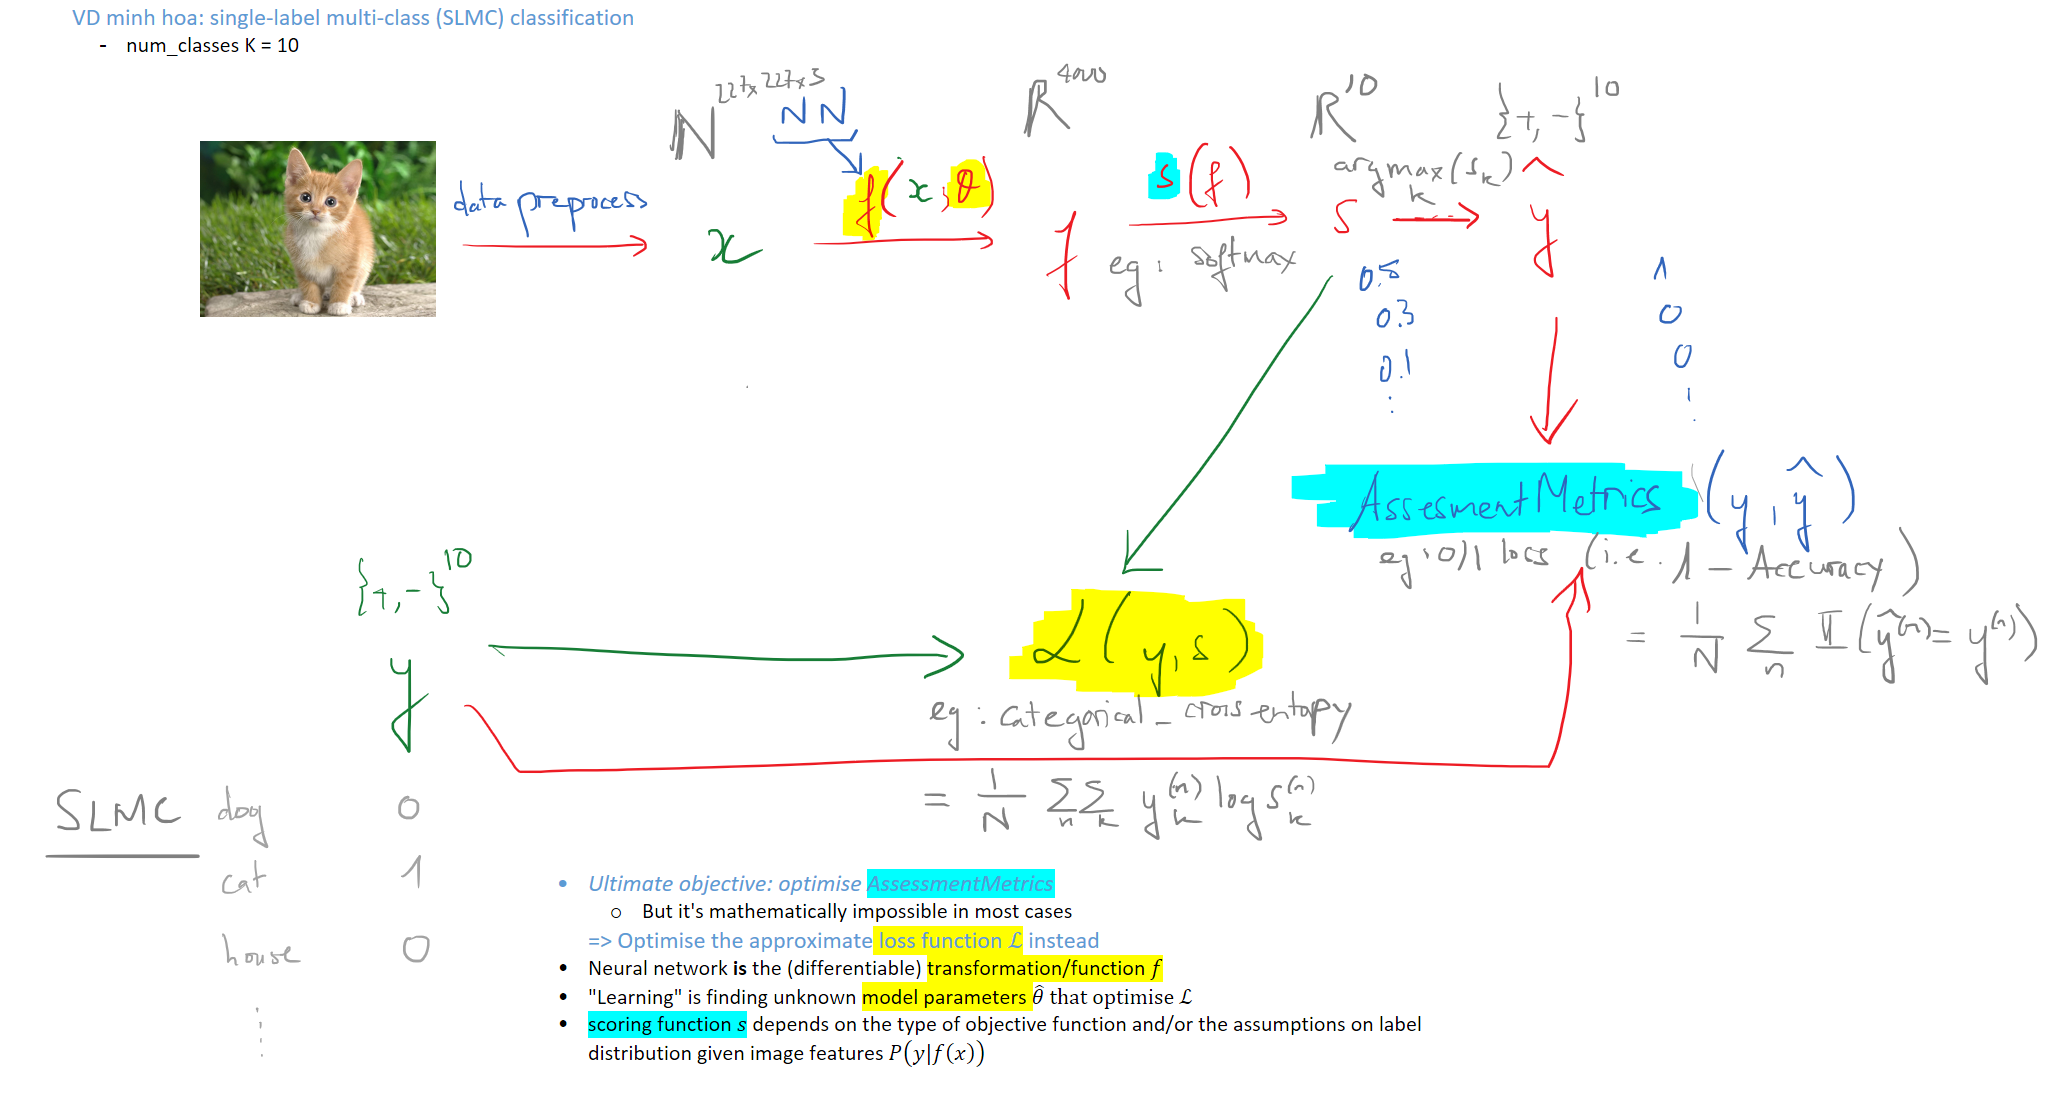 VD minh hoa: single-label multi-class (SLMC) classification
- num_classes K = 10
ℕ^227x227x3
NN
ℝ^4000
ℝ^10
{+,-}^10
data preprocess
x
f(x;θ)
f
s(f)
eg: softmax
s
argmax(s_k)
k
ŷ
0.5
0.3
0.1
:
1
0
0
:
AssesmentMetrics (y, ŷ)
eg: 0/1 loss (i.e. 1 - Accuracy)
= 1/N Σ_n 𝕀(ŷ^(n) = y^(n))
{+,-}^10
y
ℒ(y,s)
eg: categorical_cross entropy
= 1/N Σ_n Σ_k y_k^(n) log s_k^(n)
SLMC
dog 0
cat 1
house 0
⋮
• Ultimate objective: optimise AssessmentMetrics
o But it's mathematically impossible in most cases
=> Optimise the approximate loss function ℒ instead
• Neural network is the (differentiable) transformation/function f
• "Learning" is finding unknown model parameters θ̂ that optimise ℒ
• scoring function s depends on the type of objective function and/or the assumptions on label
distribution given image features P(y|f(x))